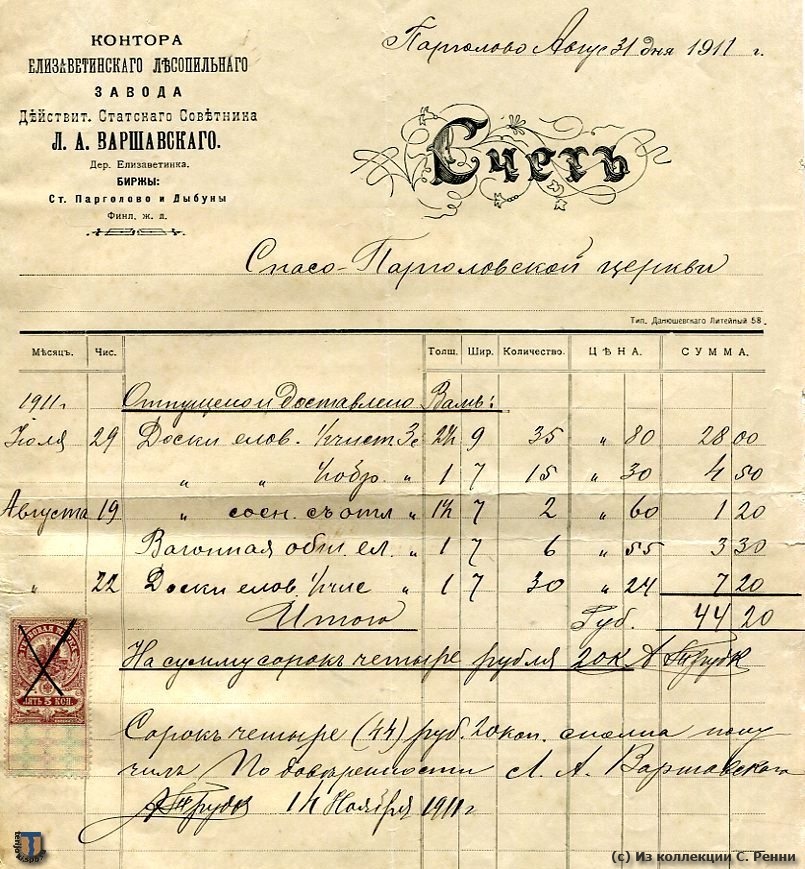 КОНТОРА
ЕЛИЗАВЕТИНСКАГО ЛѢСОПИЛЬНАГО
ЗАВОДА
Дѣйствит. Статскаго Совѣтника
Л. А. ВАРШАВСКАГО.
Дер. Елизаветинка.
БИРЖЫ:
Ст. Парголово и Дыбуны
Финл. ж. д.
Парголово Авгус 31 дня 1911 г.
Счетъ
Спасо-Парголовской церкви
Тип. Данюшевскаго Литейный 58.
Мѣсяцъ. Чис. Толщ. Шир. Количество. ЦѢНА. СУММА.
1911 г. Отпущено и Доставлено Вамъ:
Іюля 29 Доски елов. 1/2 чист 3с 2½ 9 35 „ 80 28 00
„ „ „ 1 7 15 „ 30 4 50
Августа 19 „ сосн. съ отл „ 1½ 7 2 „ 60 1 20
Вагонная обш. ел. „ 1 7 6 „ 55 3 30
„ 22 Доски елов. 1/2 чис „ 1 7 30 „ 24 7 20
Итого Руб. 44 20
На сумму сорокъ четыре рубля 20 к А Трубк
ГЕРБОВАЯ МАРКА
ПЯТЬ 5 КОП.
Сорокъ четыре (44) руб. 20 коп. сполна полу
чилъ По довѣренности Л. А. Варшавскаго
А Трубк 14 Ноября 1911 г
terijoki.spb.ru
(c) Из коллекции С. Ренни